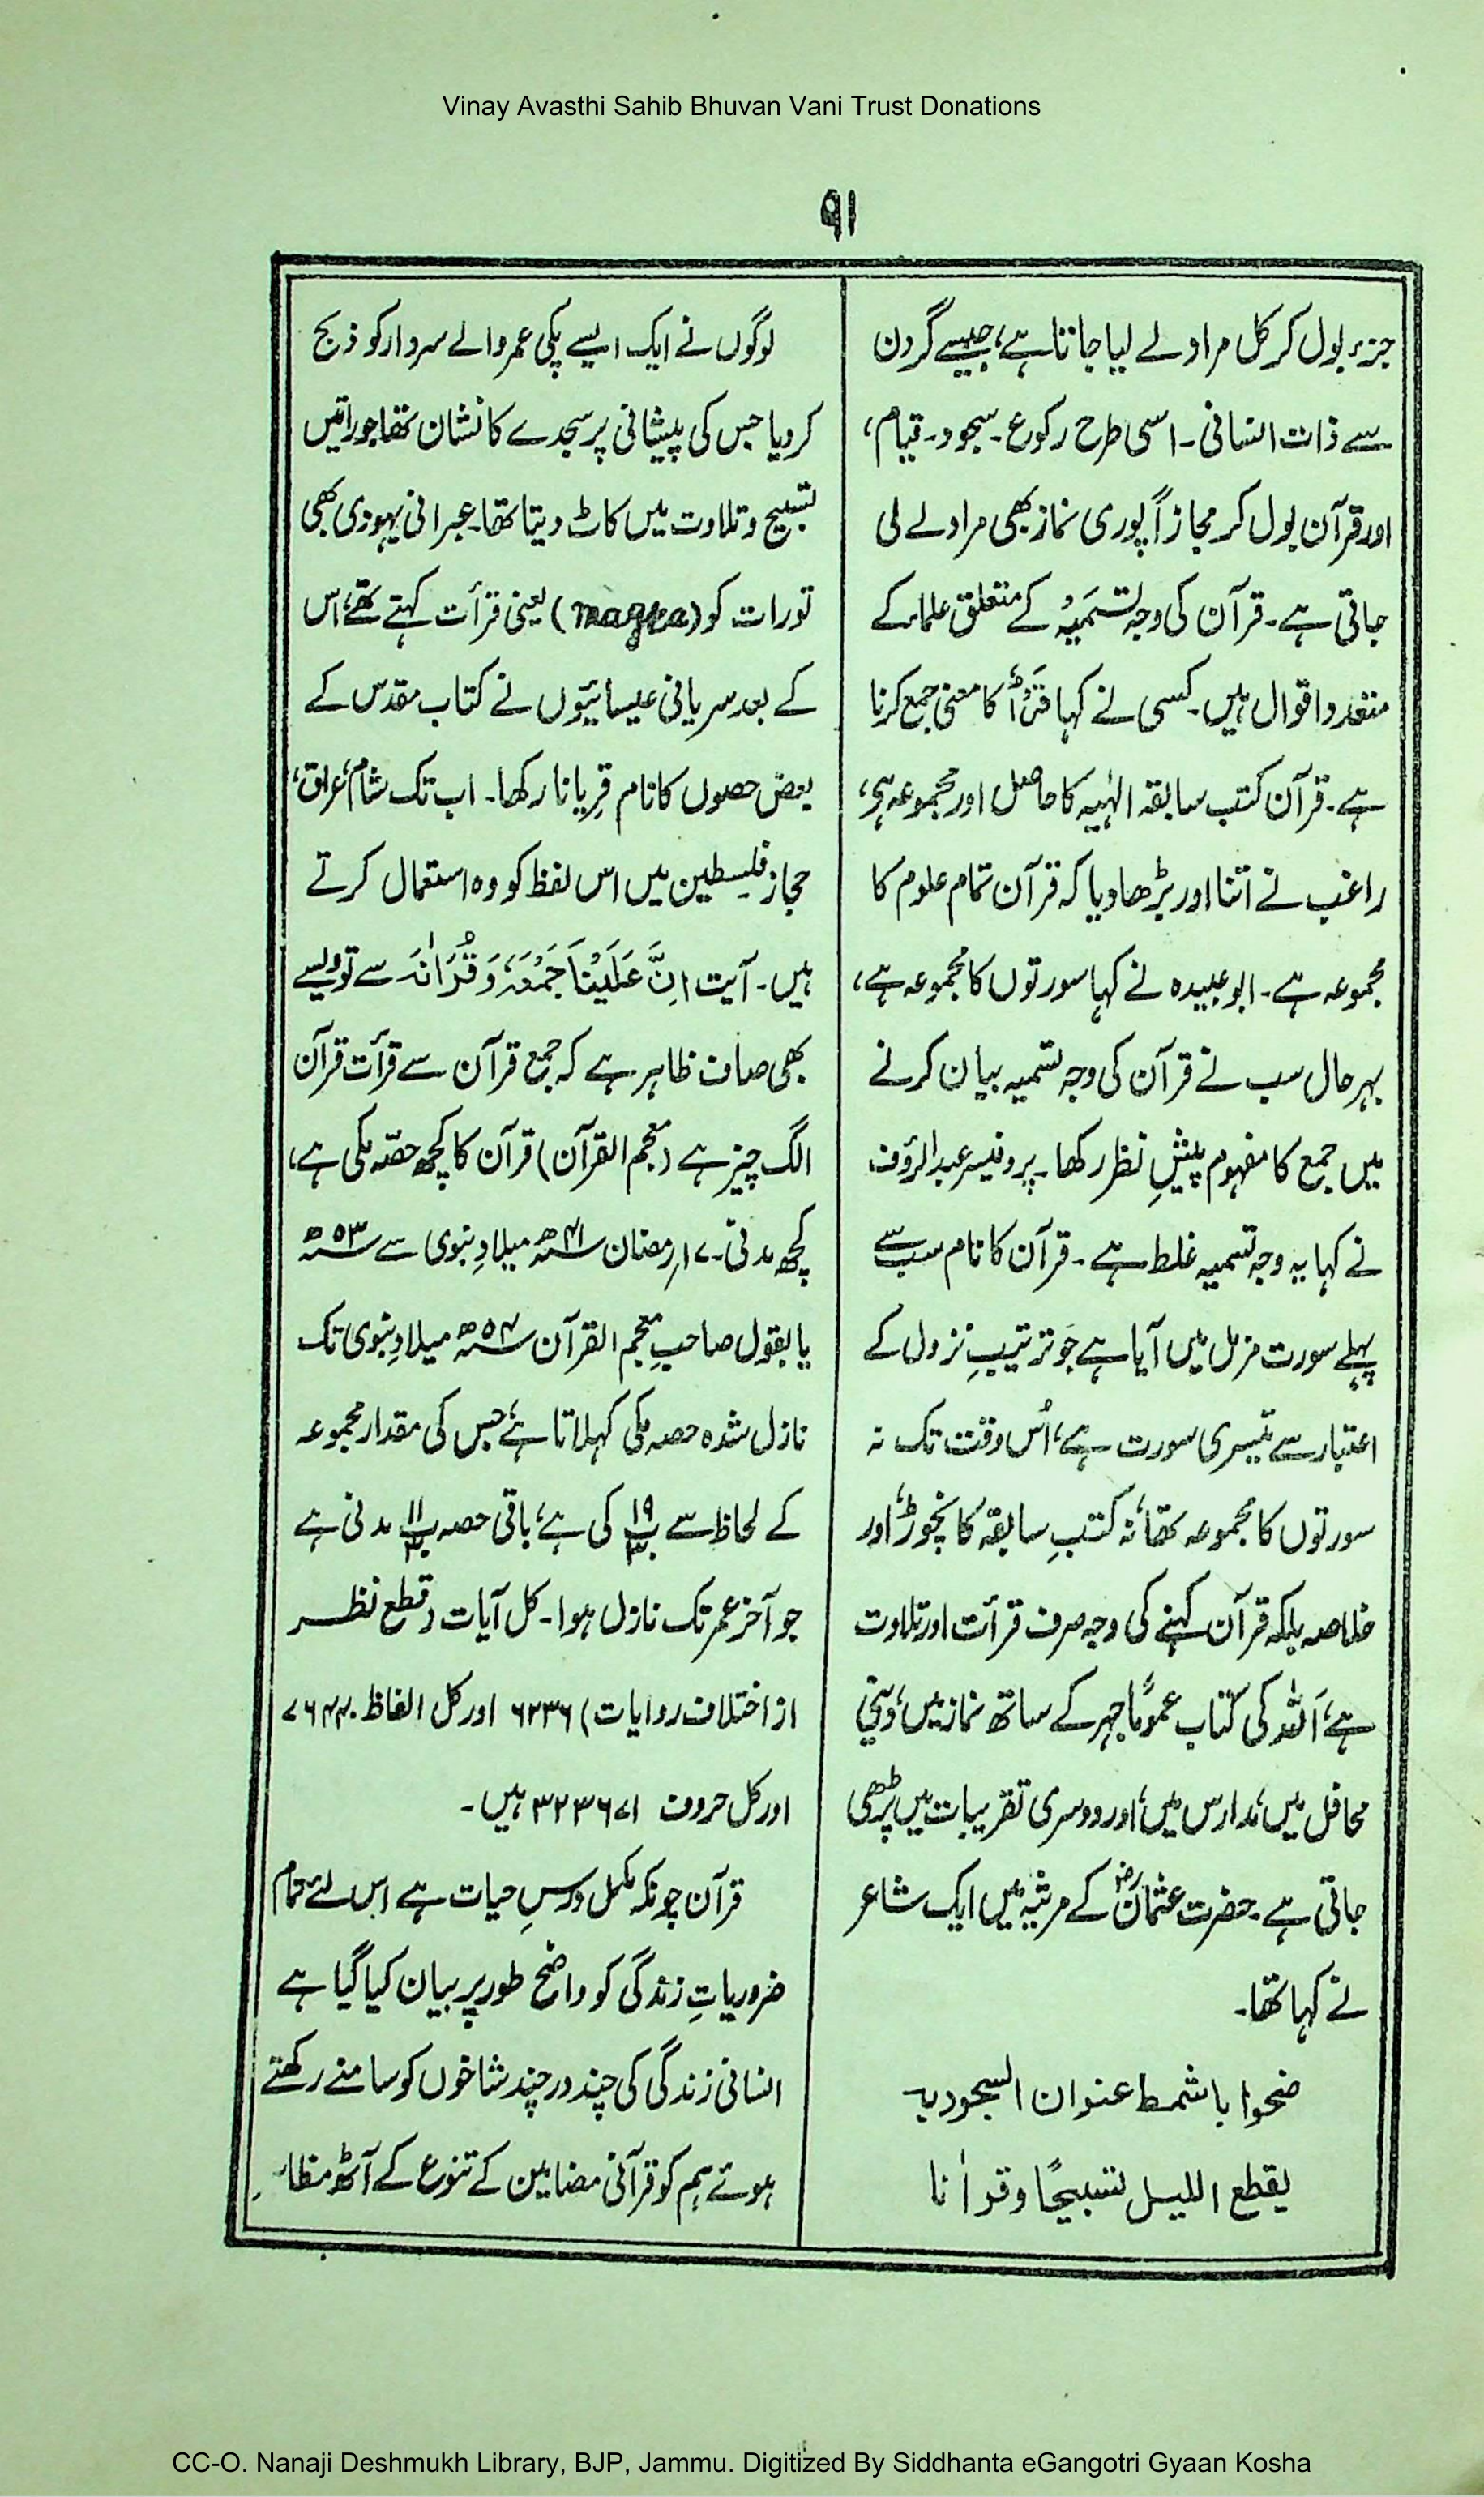 Vinay Avasthi Sahib Bhuvan Vani Trust Donations
۹۱
جزء بول کر کل مراد لے لیا جاتا ہے، جیسے گردن
سے ذات انسانی۔ اسی طرح رکوع۔ سجود۔ قیام،
اور قرآن بول کر مجازاً پوری نماز بھی مراد لے لی
جاتی ہے۔ قرآن کی وجہ تسَمیَہ کے متعلق علماء کے
متعدد اقوال ہیں۔ کسی نے کہا قَرَأَ کا معنی جمع کرنا
ہے۔ قرآن کتب سابقہ الٰہیہ کا حاصل اور مجموعہ ہی،
راغب نے اتنا اور بڑھا دیا کہ قرآن تمام علوم کا
مجموعہ ہے۔ ابو عبیدہ نے کہا سورتوں کا مجموعہ ہے،
بہرحال سب نے قرآن کی وجہ تسمیہ بیان کرنے
میں جمع کا مفہوم پیشِ نظر رکھا۔ پروفیسر عبدالرؤف
نے کہا یہ وجہ تسمیہ غلط ہے۔ قرآن کا نام سب سے
پہلے سورت مزمل میں آیا ہے جو ترتیبِ نزول کے
اعتبار سے تیسری سورت ہے، اُس وقت تک نہ
سورتوں کا مجموعہ تھا، نہ کتبِ سابقہ کا نچوڑ، اور
خلاصہ بلکہ قرآن کہنے کی وجہ صرف قرأت اور تلاوت
ہے، اَللہ کی کتاب عموماً جہر کے ساتھ نماز میں، دینی
محافل میں، مدارس میں، اور دوسری تقریبات میں پڑھی
جاتی ہے۔ حضرت عثمانؓ کے مرثیہ میں ایک شاعر
نے کہا تھا۔
ضحوا باشمط عنوان السجود بہ
یقطع اللیل تسبیحًا وقراٰنا
لوگوں نے ایک ایسے پکی عمر والے سردار کو ذبح
کر دیا جس کی پیشانی پر سجدے کا نشان تھا جو راتیں
تسبیح و تلاوت میں کاٹ دیتا تھا۔ عبرانی یہودی بھی
تورات کو (maqra) یعنی قرأت کہتے تھے، اس
کے بعد سریانی عیسائیوں نے کتاب مقدس کے
بعض حصوں کا نام قِریانا رکھا۔ اب تک شام، عراق،
حجاز فلیسطین میں اس لفظ کو وہ استعمال کرتے
ہیں۔ آیت اِنَّ عَلَیْنَا جَمْعَہٗ وَ قُرْاٰنَہٗ سے تو ویسے
بھی صاف ظاہر ہے کہ جمع قرآن سے قرأت قرآن
الگ چیز ہے (معجم القرآن) قرآن کا کچھ حصّہ مکی ہے،
کچھ مدنی۔ ۱۷؍ رمضان ۴۱ھ میلادِ نبوی سے ۵۳ھ
یا بقول صاحبِ معجم القرآن ۵۴ھ میلادِ نبوی تک
نازل شدہ حصہ مکی کہلاتا ہے، جس کی مقدار مجموعہ
کے لحاظ سے ۱۹/۳۰ کی ہے، باقی حصہ ۱۱/۳۰ مدنی ہے
جو آخر عمر تک نازل ہوا۔ کل آیات (قطع نظر
از اختلاف روایات) ۶۲۳۶ اور کل الفاظ ۷۶۴۴۰
اور کل حروف ۳۲۳۶۷۱ ہیں۔
قرآن چونکہ مکمل درسِ حیات ہے اس لئے تمام
ضروریاتِ زندگی کو واضح طور پر بیان کیا گیا ہے
انسانی زندگی کی چند در چند شاخوں کو سامنے رکھتے
ہوئے ہم کو قرآنی مضامین کے تنوع کے آٹھ مظاہر
CC-O. Nanaji Deshmukh Library, BJP, Jammu. Digitized By Siddhanta eGangotri Gyaan Kosha